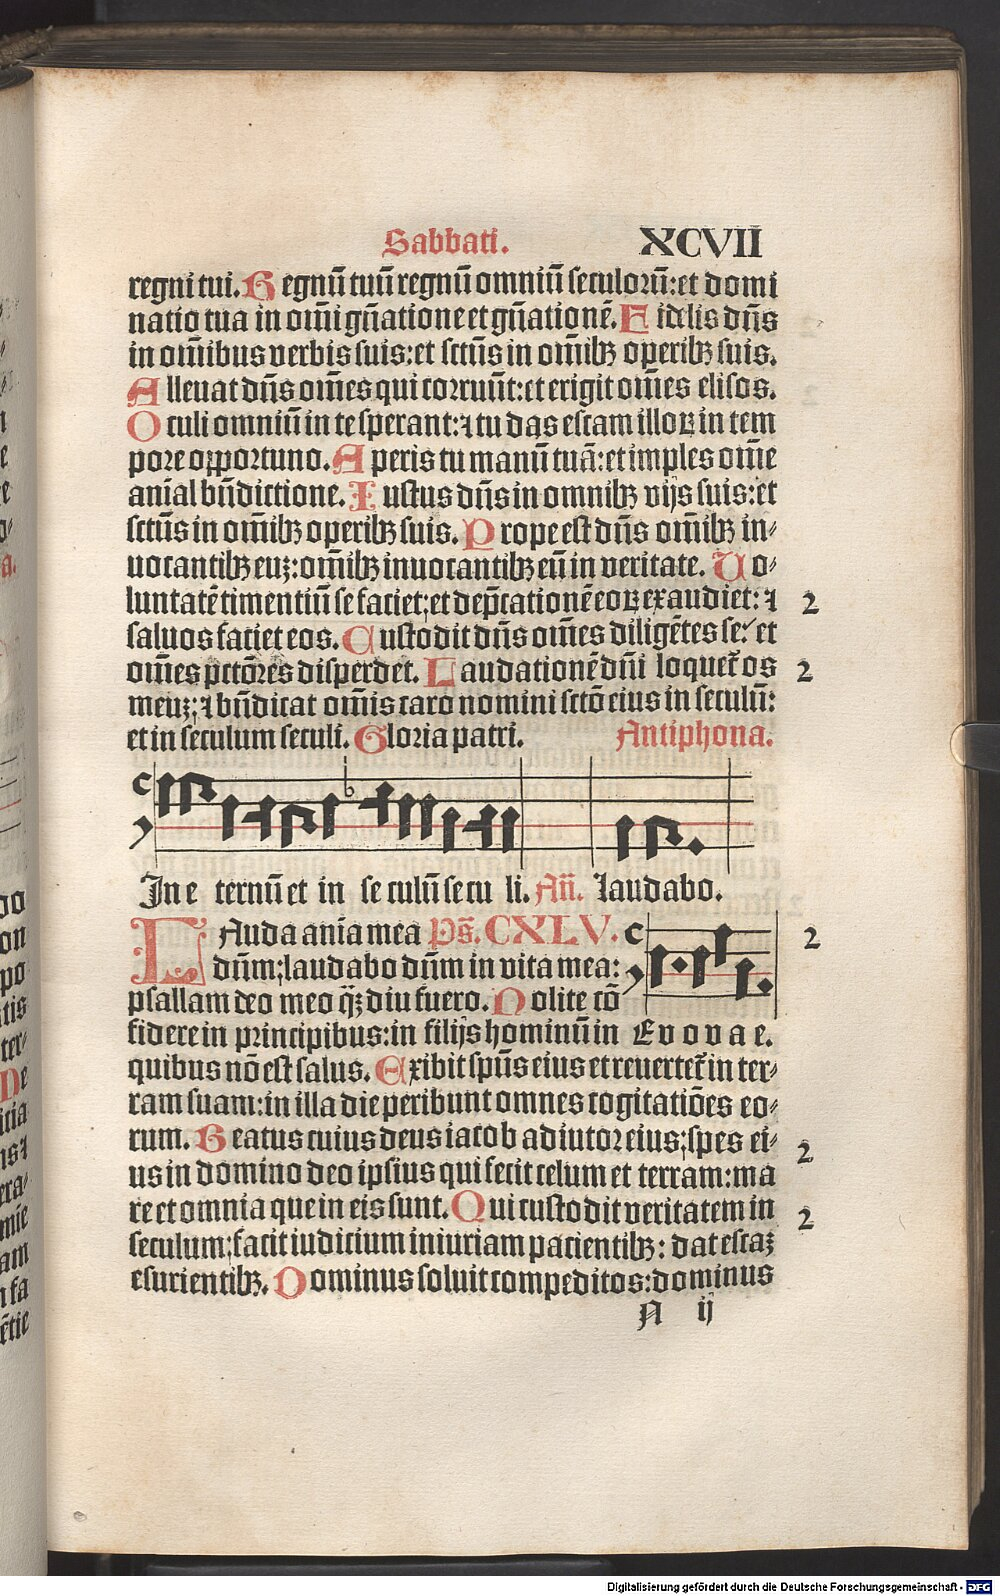 Sabbati. XCVII
regni tui. Regnū tuū regnū omniū seculorū: et domi
natio tua in om̄i gn̄atione et gn̄ationē. Fidelis dn̄s
in om̄ibus verbis suis: et sctūs in om̄ibꝫ operibꝫ suis.
Alleuat dn̄s om̄es qui corruūt: et erigit om̄es elisos.
Oculi omniū in te sperant: ⁊ tu das escam illoꝝ in tem
pore opportuno. Aperis tu manū tuā: et imples om̄e
anīal bn̄dictione. Iustus dn̄s in omnibꝫ vijs suis: et
sctūs in om̄ibꝫ operibꝫ suis. Prope est dn̄s om̄ibꝫ in⸗
uocantibꝫ euꝫ: om̄ibꝫ inuocantibꝫ eū in veritate. Uo⸗
luntatē timentiū se faciet: et dep̄cationē eoꝝ exaudiet: ⁊ 2
saluos faciet eos. Custodit dn̄s om̄es diligētes se: et
om̄es pctōres disperdet. Laudationē dn̄i loquet̄ os 2
meuꝫ: ⁊ bn̄dicat om̄is caro nomini sctō eius in seculū:
et in seculum seculi. Gloria patri. Antiphona.
In e ternū et in se culū se cu li. An̄. Laudabo.
LAuda anīa mea Ps̄. CXLV. 2
dūm: laudabo dūm in vita mea:
psallam deo meo qꝫ̄ diu fuero. Nolite cō
fidere in principibus: in filijs hominū in Evovae.
quibus nō est salus. Exibit spūs eius et reuertet̄ in ter⸗
ram suam: in illa die peribunt omnes cogitatiōes eo⸗
rum. Beatus cuius deus iacob adiutor eius: spes ei⸗ 2
us in domino deo ipsius qui fecit celum et terram: ma
re et omnia que in eis sunt. Qui custodit veritatem in 2
seculum: facit iudicium iniuriam pacientibꝫ: dat escaꝫ
esurientibꝫ. Dominus soluit compeditos: dominus
N ij
Digitalisierung gefördert durch die Deutsche Forschungsgemeinschaft - DFG